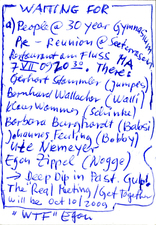 WAITING FOR
a) People @ 30 year Gymnasium
Pre - Reunion @ Seekrossen
Restaurant am FLUSS MA
7. VII 07 20 30. There:
Gerhart Stammler (Jumper)
Bernhard Wallacher (Walli)
Klaus Wammer (Schinke)
Barbara Burghardt (Babsi)
Johannes Feuling (Bobby)
Ute Niemeyer
Egon Zippel (Negge)
→ Deep Dip in Past. Gulp!
The Real Meeting / Get Together
will be Oct 10/2009
"WTF" Egon